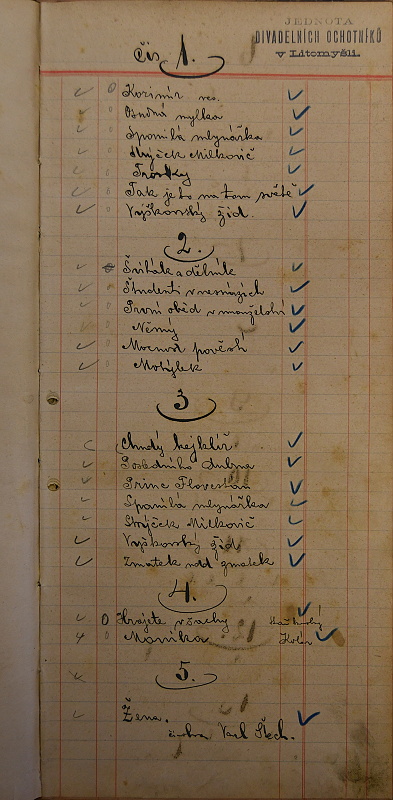 JEDNOTA
DIVADELNÍCH OCHOTNÍKŮ
v Litomyšli.
čís 1.
Kazimír
Bludná mylka
Spanilá mlynářka
Strýček Milkovič
Tak je to na tom světě
Vyškovský žid.
2.
Švihák a dělník
Študenti v nesnázích
První oběd v manželství
Němý
Mocnost pověsti
Motýlek
3
Chudý kejklíř
Posledního dubna
Princ Florestan
Spanilá mlynářka
Strýček Milkovič
Vyškovský žid
Zmatek nad zmatek
4.
Hrajete v šachy
Monika
5.
Žena.
Vacl Štech.